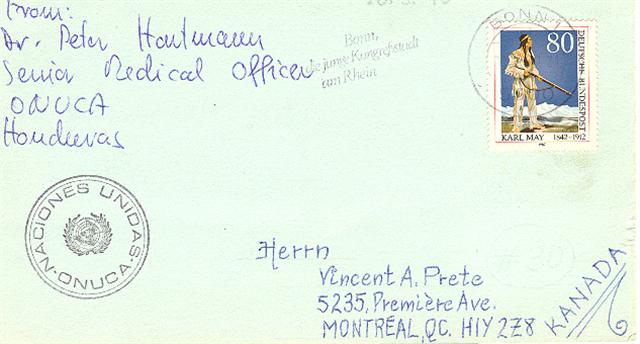 From:
Dr. Peter Hartmann
Senior Medical Officer
ONUCA
Honduras
Bonn,
die junge Kongreßstadt
am Rhein
BONN 1
80
DEUTSCHE BUNDESPOST
KARL MAY 1842-1912
NACIONES UNIDAS
ONUCA
Herrn
Vincent A. Prete
5235, Première Ave.
MONTRÉAL, QC. H1Y 2Z8
KANADA